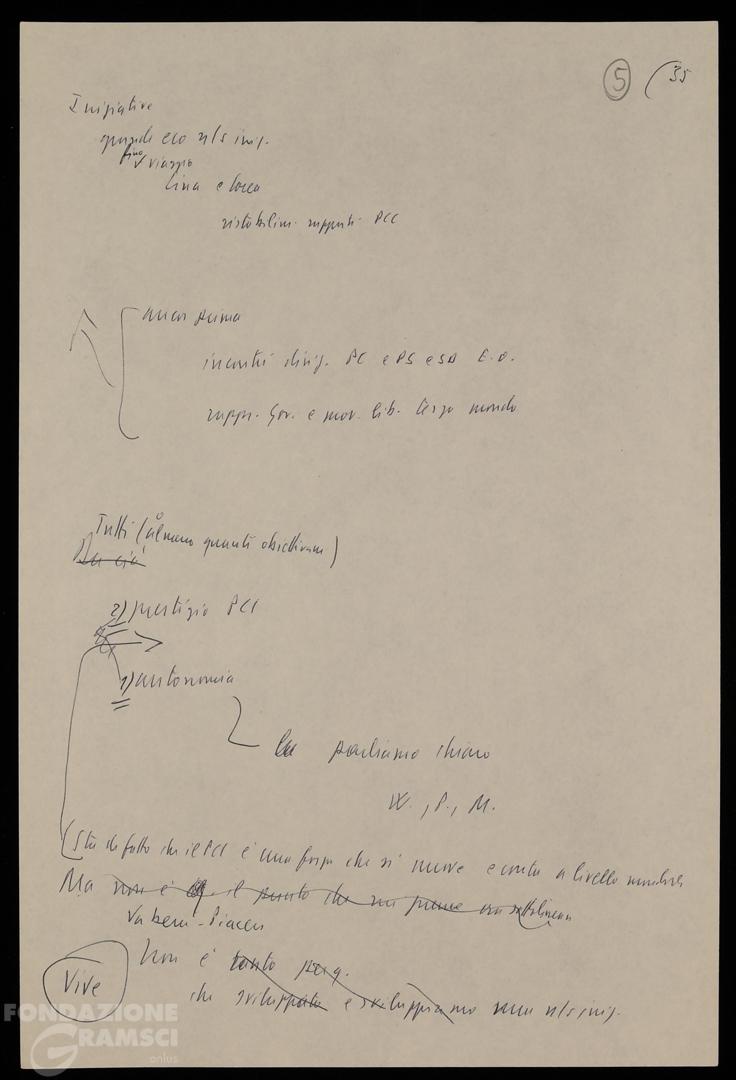 5 (35
Iniziative
grande eco n/s iniz.
fino viaggio
Cina e Corea
ristabilim. rapporti PCC
ancor prima
incontri dirig. PC e PS e SD E.O.
rapp. Gov. e mov. lib. terzo mondo
Tutti (almeno quanti obiettivam)
Da ciò
2) prestigio PCI
1) autonomia
parliamo chiaro
W., P., M.
(Sta di fatto che il PCI è una forza che si muove e conta a livello mondiale
Ma non è il punto che mi preme ora sottolineare
Va bene - Piacere
Non è tanto perq.
Vive
che sviluppato e sviluppiamo n/s iniz.
FONDAZIONE
GRAMSCI
onlus